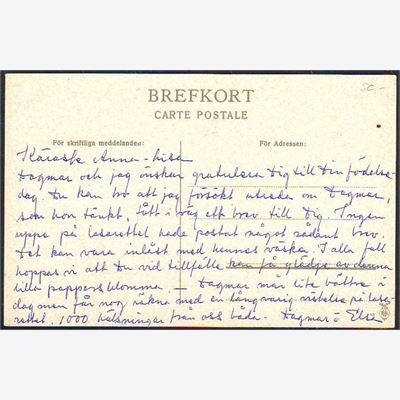 50.-
BREFKORT
CARTE POSTALE
För skriftliga meddelanden:
För Adressen:
Käraste Anna-Lisa
Dagmar och jag önskar gratulera Dig till Din födelse-
dag. Du kan tro att jag försökt utreda om Dagmar,
som hon tänkt, fått iväg ett brev till Dig. Ingen
uppe på lasarettet hade postat något sådant brev.
Det kan vara inlåst med hennes väska. I alla fall
hoppas vi att Du vid tillfälle kan få glädje av denna
lilla pappersblomma. — Dagmar mår lite bättre i
dag men får nog räkna med en långvarig vistelse på lasa-
rettet. 1000 hälsningar från oss båda. Dagmar o Elsa